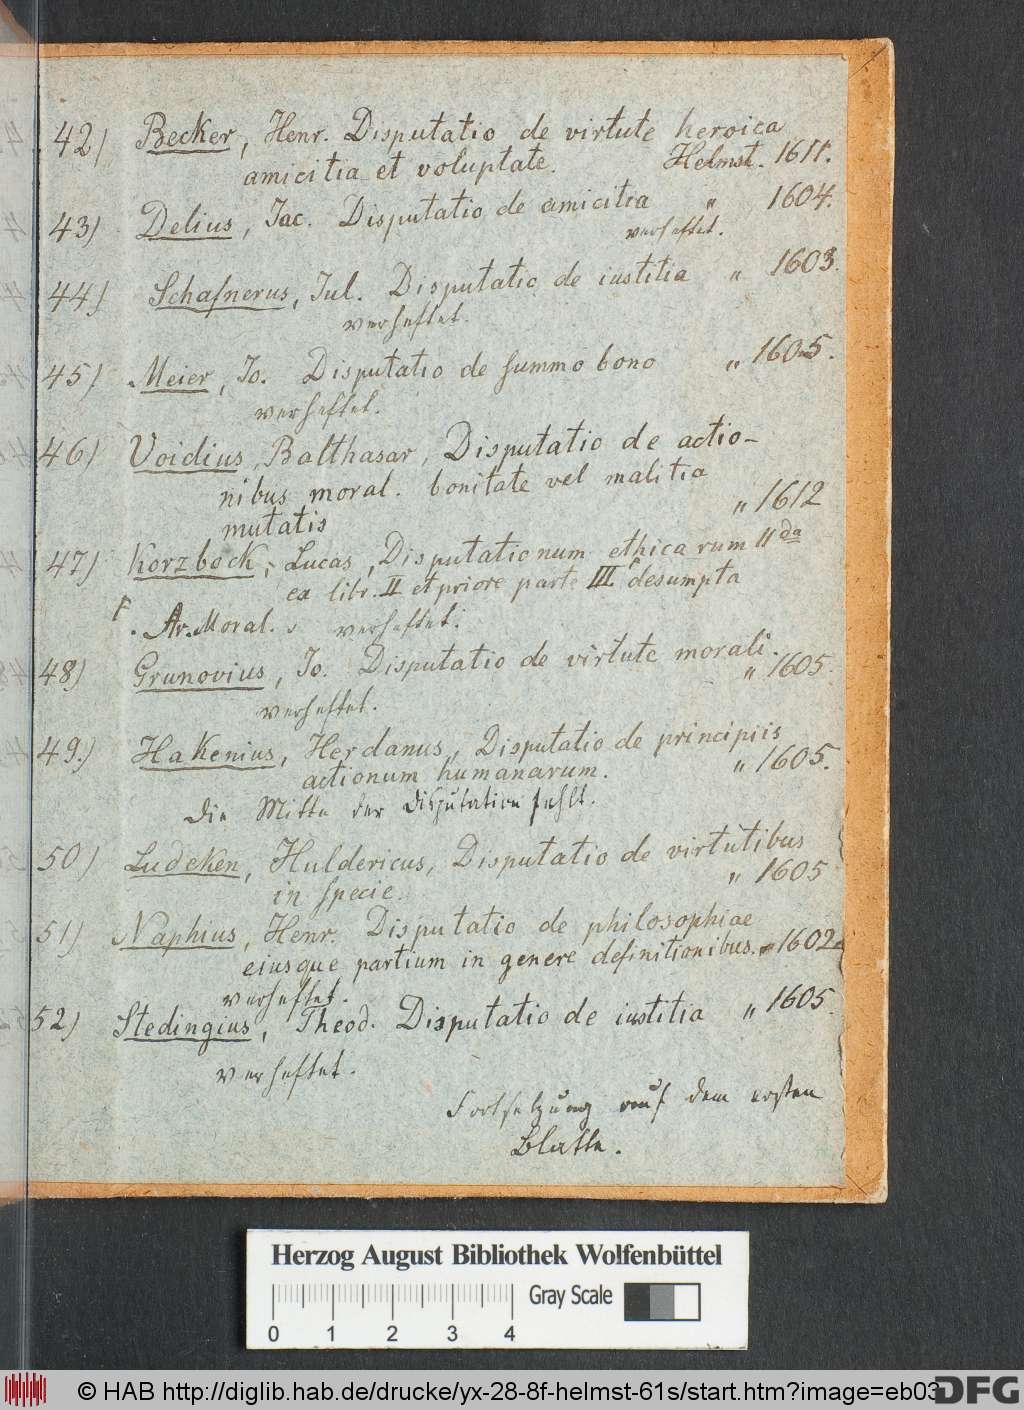 42) Becker, Henr. Disputatio de virtute heroica
amicitia et voluptate. Helmst. 1611.
43) Delius, Jac. Disputatio de amicitia " 1604.
verheftet.
44) Schafnerus, Jul. Disputatio de iustitia " 1603.
verheftet.
45) Meier, Jo. Disputatio de summo bono " 1605.
verheftet.
46) Voidius, Balthasar, Disputatio de actio-
nibus moral. bonitate vel malitia
mutatis " 1612
47) Korzbock, Lucas, Disputationum ethicarum 11da
ex libr. II et priore parte III desumpta
Ar. Moral. verheftet.
48) Grunovius, Jo. Disputatio de virtute morali.
" 1605.
verheftet.
49.) Hakenius, Herdanus, Disputatio de principiis
actionum humanarum. " 1605.
Die Mitte der Disputation fehlt.
50) Ludeken, Huldericus, Disputatio de virtutibus
in specie. " 1605
51) Naphius, Henr. Disputatio de philosophiae
eiusque partium in genere definitionibus. " 1602.
verheftet.
52) Stedingius, Theod. Disputatio de iustitia " 1605.
verheftet.
Fortsetzung auf dem ersten
Blatte.
Herzog August Bibliothek Wolfenbüttel
Gray Scale
0 1 2 3 4
© HAB http://diglib.hab.de/drucke/yx-28-8f-helmst-61s/start.htm?image=eb03
DFG